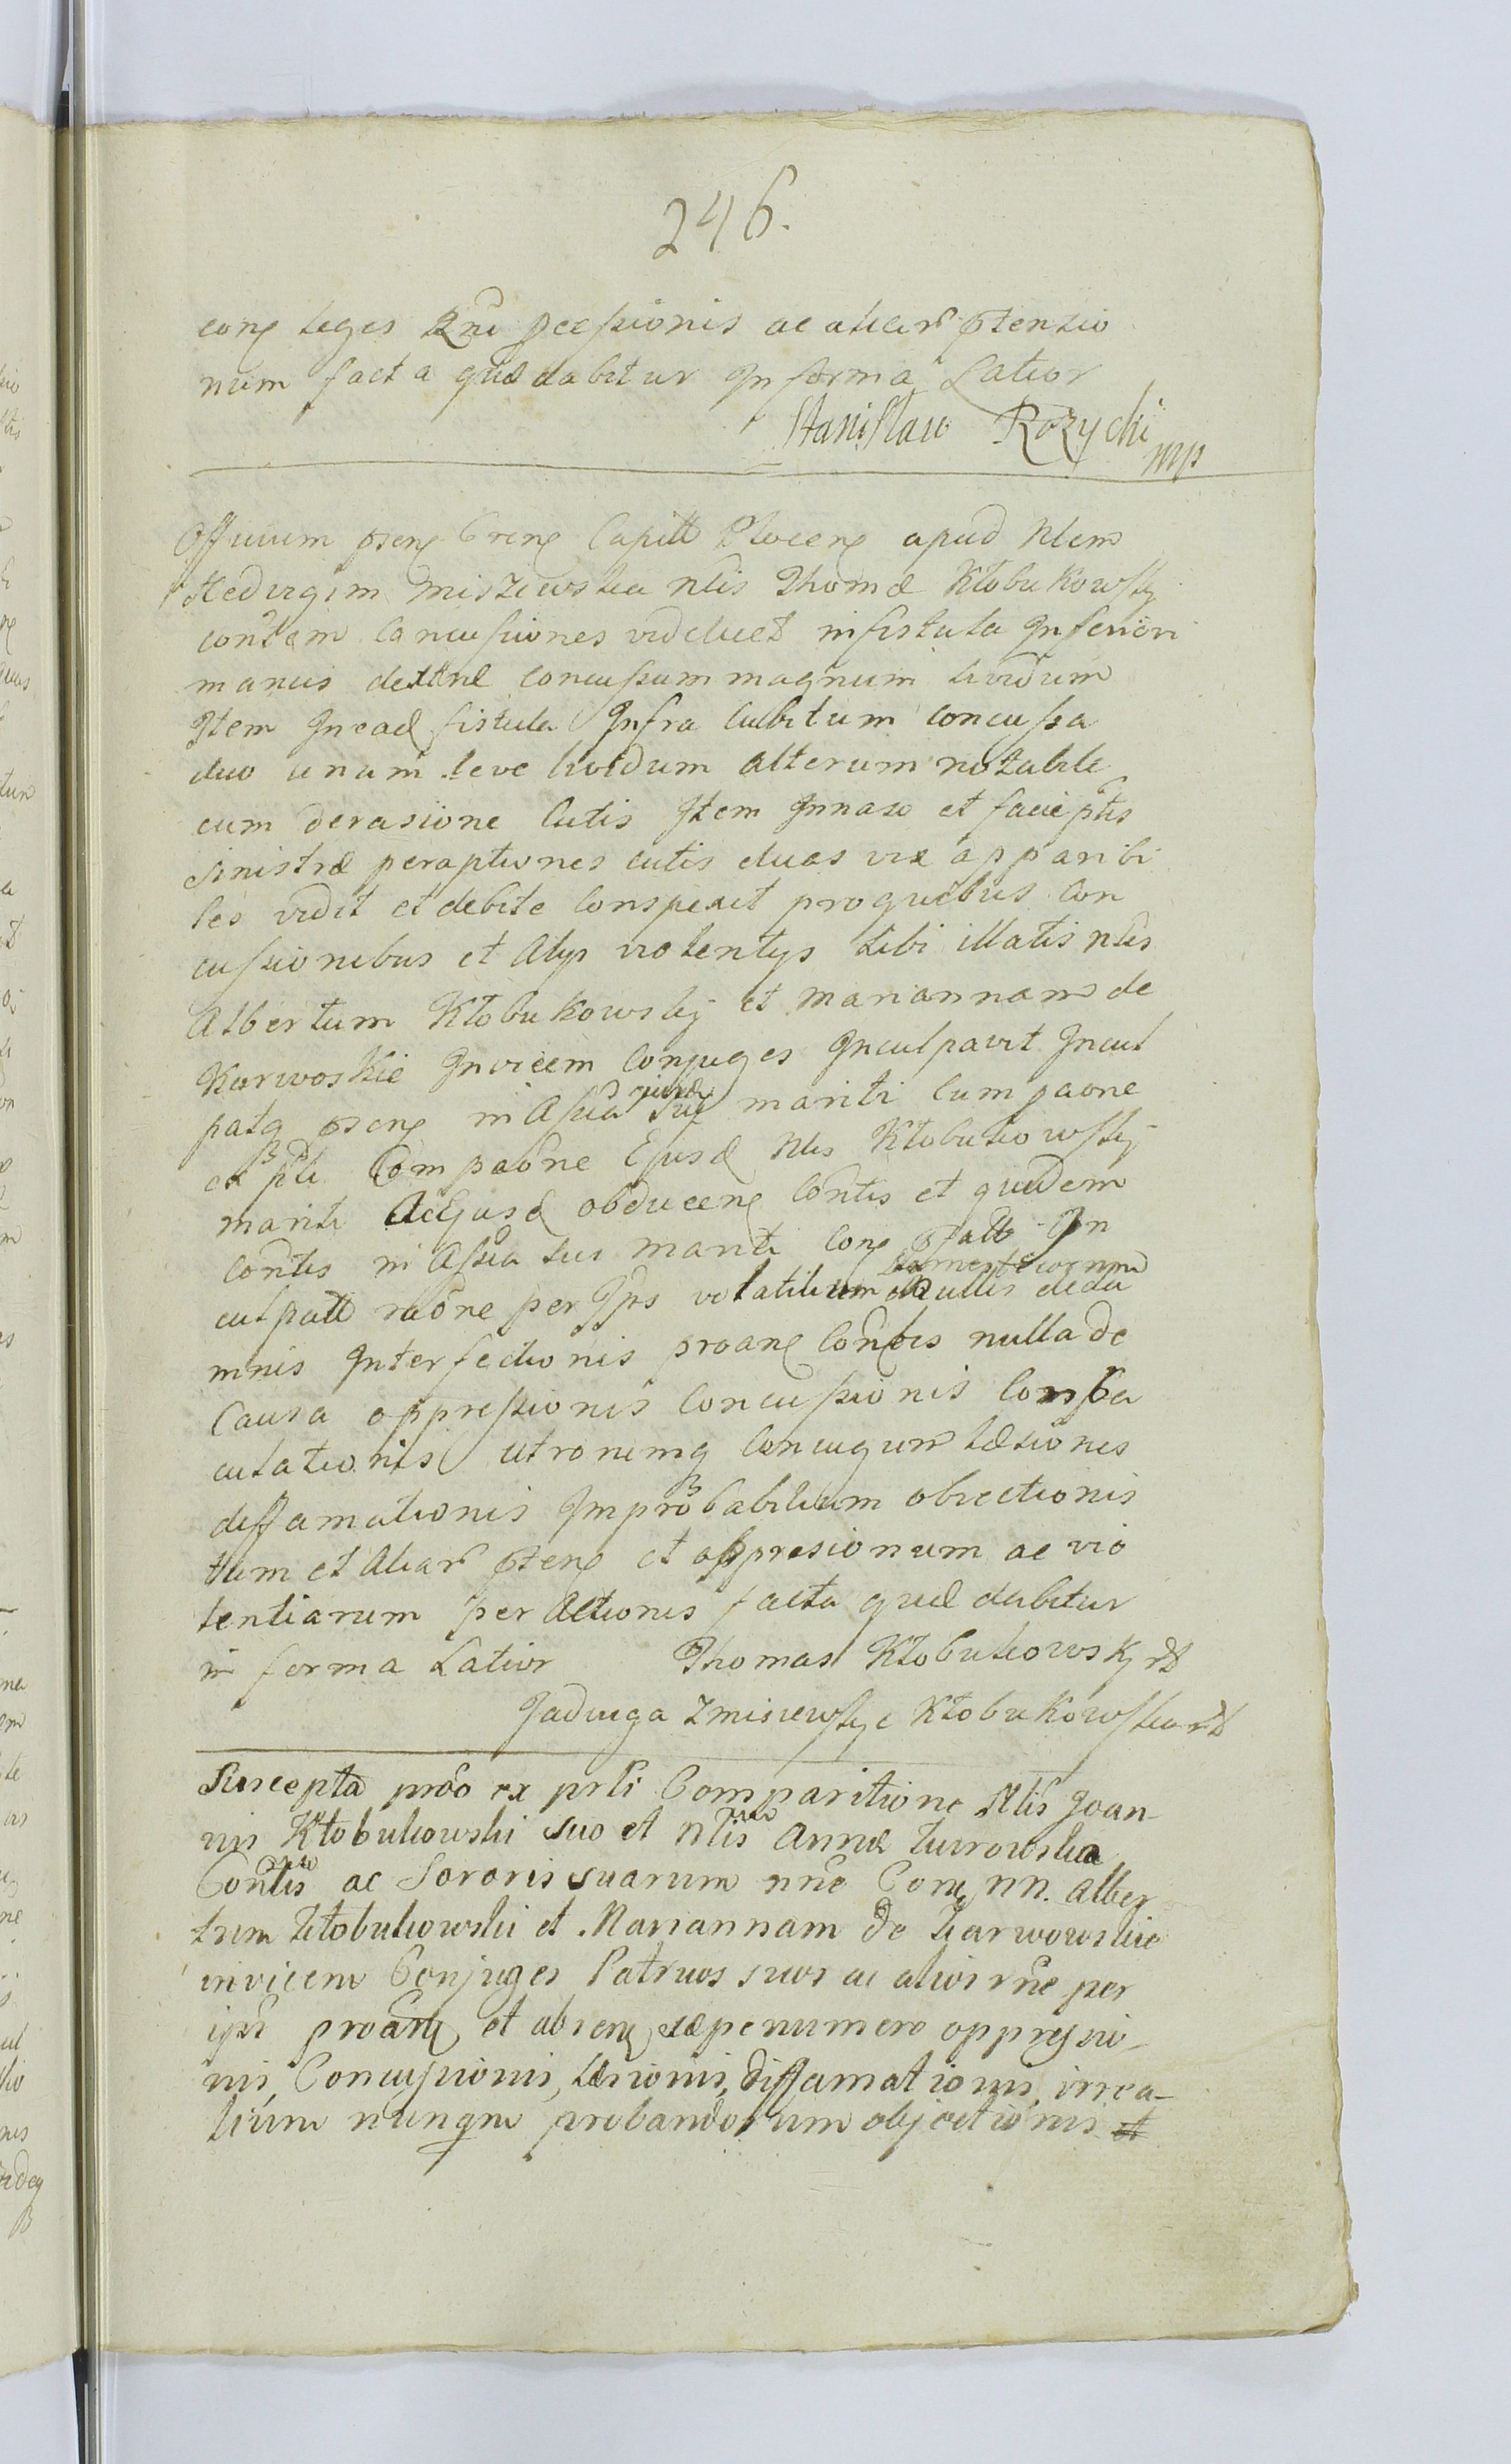 246.
conq leges Rni pcessionis ac aliar ptensio
num facta quæ dabitur In forma Latior
Stanislaw Rozycki mp
Officium psens Crens Capitt Plocens apud Nlem
Hedvigim Misziewska Nlis Thomæ Kłobukowsky
contem Concussiones vidduet in fistula Inferiori
manus dextræ concussum magnum lividum
Item In ead fistula Infra cubitum concussa
duo unum leve lividum alterum notabile
cum derasione cutis Item In naso et facie ptis
sinistræ peraptiones cutis duas vix apparibi
les vidit et debite conspexit pro quibus con
cussionibus et alys violentys sibi illatis Nles
Albertum Kłobukowsky et Mariannam de
Karwoskie Invicem Conjuges Inculpavit Incul
patq psens in assia sui mariti cum paone
ex pti Compaone Ejusd Nlis Kłobukowsky
mariti Ac Ejusd obducens Contis et quidem
Contis in Assia sui mariti Conq ptatt In
culpatt raone per Ipos volatilium domesticorum nullis dedu
mnis Interfectionis proanq Contis nulla de
Causa oppressionis Concussionis Conba
culationis utronimq Conjugum Læsiones
diffamationis Improbabilium obiectionis
tum et aliar ptens et oppresionum ac vio
lentiarum per Actionis facta quæ dabitur
in forma Latior Thomas Kłobukowsky
Jadwiga Zmisiewskye Kłobukowska
Suscepta pro ex prti Comparitione Nlis Joan-
nis Kłobukowski suo et Nlis Annæ Turowska
Contis ac Sororis suarum nne Conq NN. Alber
tum Kłobukowski et Mariannam de Karwowskie
invicem Conjuges Patruos suos ac alios rne per
ipsos proanq et absenq sæpenumero oppressio-
nis, Concussionis, Læsionis, diffamationis, irrea-
lium nunqm probandorum objectionis et